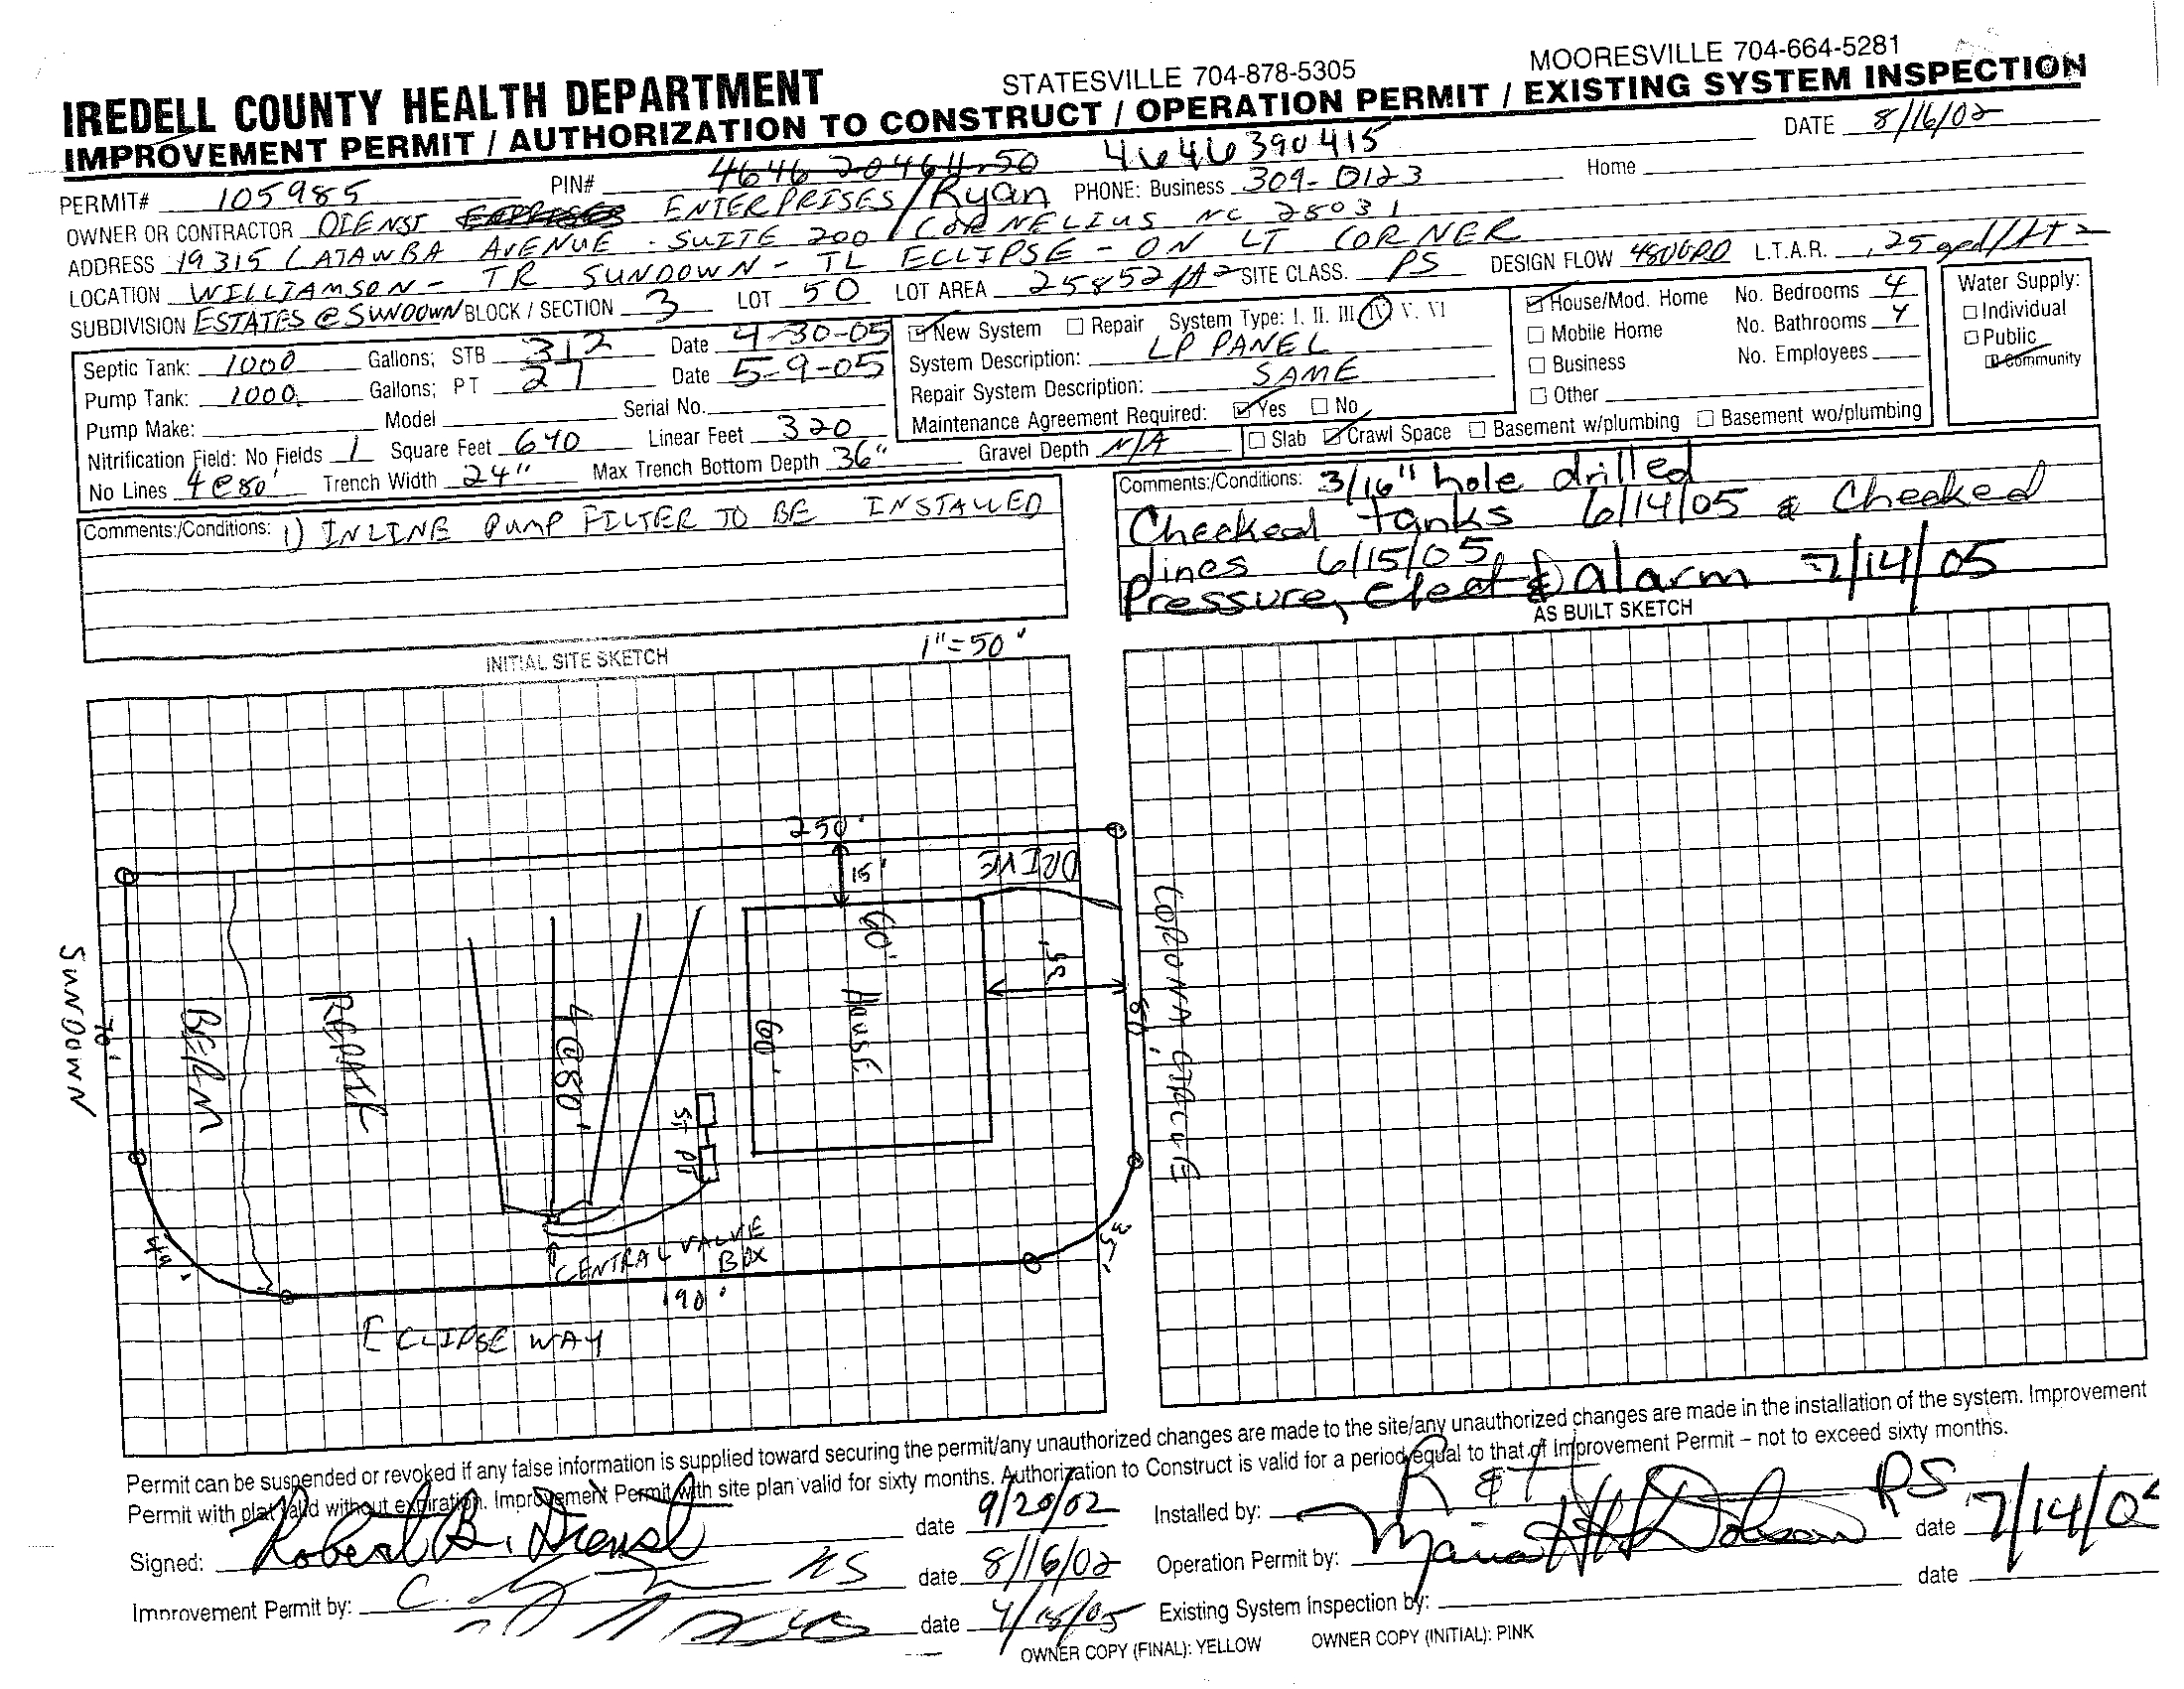 STATESVILLE 704-878-5305 MOORESVILLE 704-664-5281
IREDELL COUNTY HEALTH DEPARTMENT
IMPROVEMENT PERMIT / AUTHORIZATION TO CONSTRUCT / OPERATION PERMIT / EXISTING SYSTEM INSPECTION
DATE 8/16/02
PERMIT# 105985 PIN# 4646390415
OWNER OR CONTRACTOR DIENST ENTERPRISES/Ryan PHONE: Business 309-0123 Home
ADDRESS 19315 CATAWBA AVENUE - SUITE 200 / CORNELIUS NC 28031
LOCATION WILLIAMSON - TR SUNDOWN - TL ECLIPSE - ON LT CORNER
SUBDIVISION ESTATES @ SUNDOWN BLOCK / SECTION 3 LOT 50 LOT AREA 25852 ft2 SITE CLASS. PS DESIGN FLOW 480GPD L.T.A.R. .25 gpd/ft2
Septic Tank: 1000 Gallons; STB 312 Date 4-30-05
Pump Tank: 1000 Gallons; PT 27 Date 5-9-05
Pump Make: Model Serial No.
Nitrification Field: No Fields 1 Square Feet 640 Linear Feet 320
No Lines 4@80' Trench Width 24" Max Trench Bottom Depth 36" Gravel Depth N/A
New System Repair System Type: I. II. III. IV V. VI
System Description: LP PANEL
Repair System Description: SAME
Maintenance Agreement Required: Yes No
House/Mod. Home No. Bedrooms 4
Mobile Home No. Bathrooms 4
Business No. Employees
Other
Slab Crawl Space Basement w/plumbing Basement wo/plumbing
Water Supply:
Individual
Public
Community
Comments:/Conditions: 1) INLINE PUMP FILTER TO BE INSTALLED
Comments:/Conditions: 3/16" hole drilled
Checked tanks 6/14/05 & Checked
lines 6/15/05
Pressure, Elect & Alarm 7/14/05
INITIAL SITE SKETCH 1"=50'
AS BUILT SKETCH
250'
15'
DRIVE
60'
HOUSE
60'
55'
50'
CORONA CIRCLE
SUNDOWN
70'
BERM
REPAIR
4@80'
ST
PT
CENTRAL VALVE
BOX
190'
ECLIPSE WAY
Permit can be suspended or revoked if any false information is supplied toward securing the permit/any unauthorized changes are made to the site/any unauthorized changes are made in the installation of the system. Improvement
Permit with plat valid without expiration. Improvement Permit with site plan valid for sixty months. Authorization to Construct is valid for a period equal to that of Improvement Permit – not to exceed sixty months.
Signed: Robert B. Dienst date 9/20/02
Installed by: R & H
Improvement Permit by: date 8/16/02
Operation Permit by: Maria Dobson RS date 7/14/0
date 4/18/05
Existing System Inspection by: date
OWNER COPY (FINAL): YELLOW OWNER COPY (INITIAL): PINK